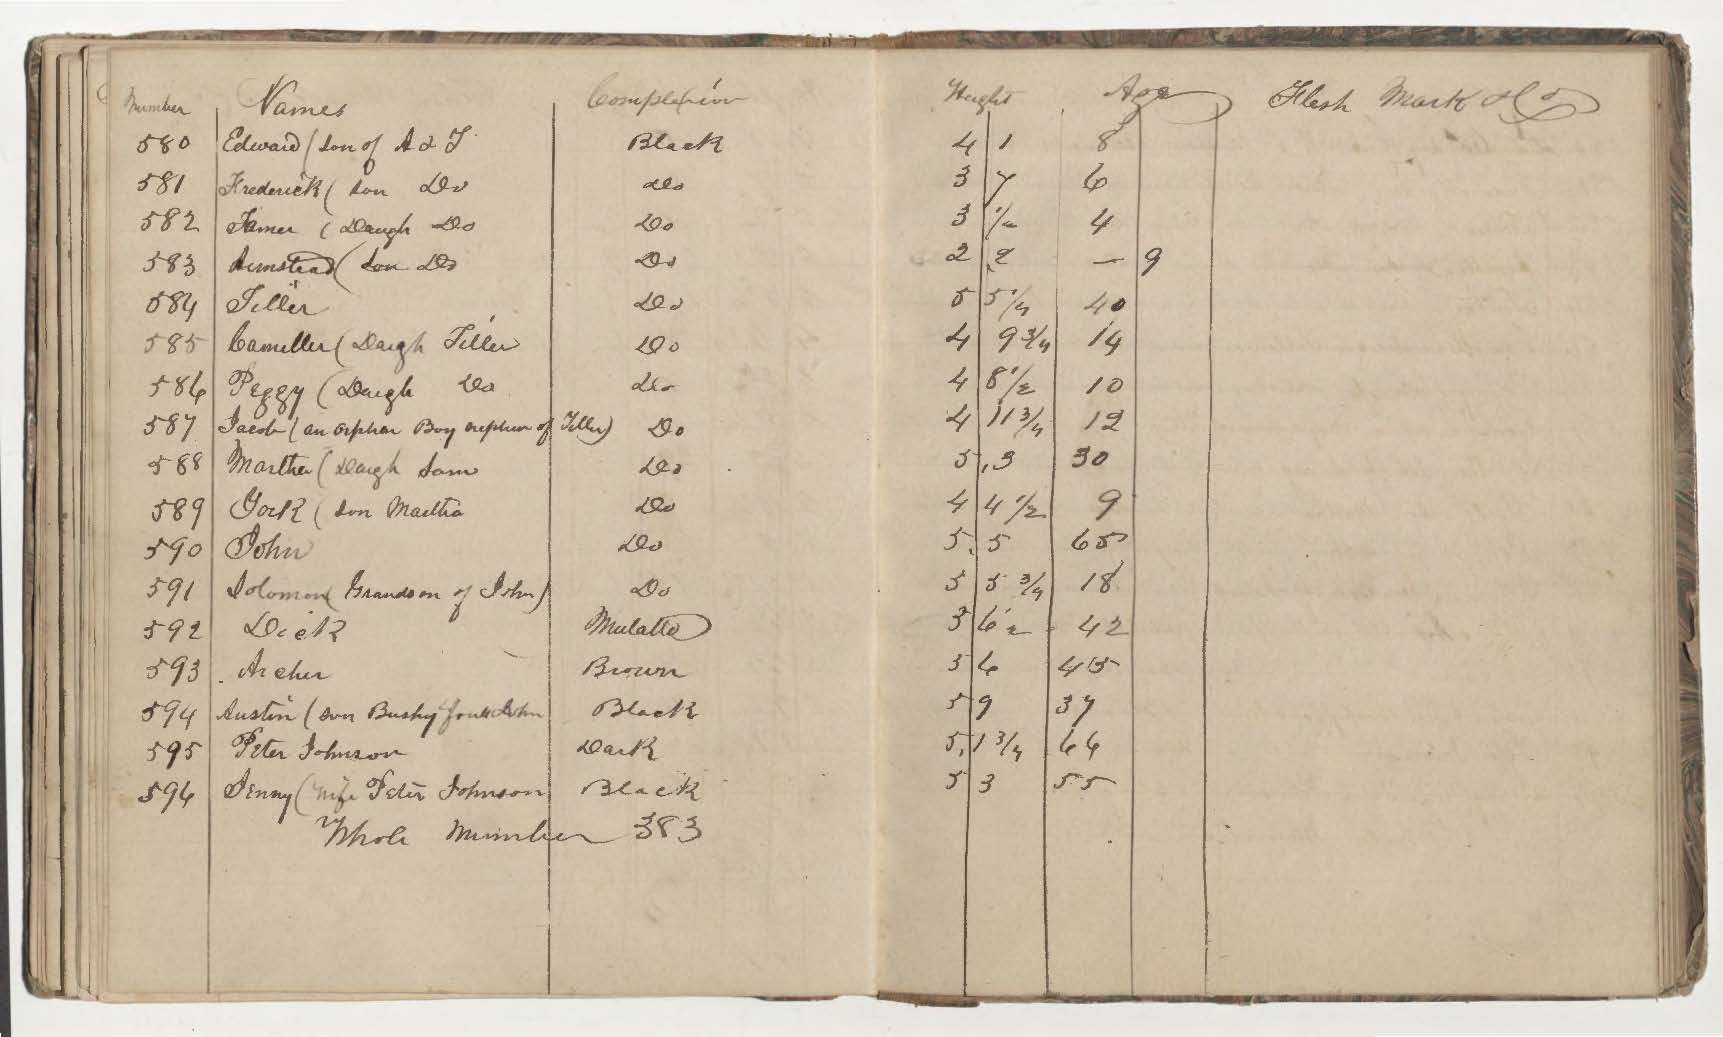 Number Names Complexion Hught Age Flesh Mark &c
580 Edward (son of A & T Black 4 1 8
581 Frederick (son Do Do 3 7 6
582 Tamer (Daugh Do Do 3 1/2 4
583 Armstead (son Do Do 2 2 — 9
584 Tiller Do 5 5 1/4 40
585 Cameller (Daugh Tiller Do 4 9 3/4 14
586 Peggy (Daugh Do Do 4 8 1/2 10
587 Jacob (an orphan Boy orphan of Tiller) Do 4 11 3/4 12
588 Martha (Daugh Sam Do 5,3 30
589 York (son Martha Do 4 4 1/2 9
590 John Do 5. 5 65
591 Solomon (Grandson of John) Do 5 5 3/4 18
592 Dick Mulatto 5 6 1/2 42
593 Archer Brown 5 6 45
594 Austin (son Bushy John Black 5 9 37
595 Peter Johnson Dark 5, 1 3/4 66
596 Jenny (wife Peter Johnson Black 5 3 55
Whole Number 383